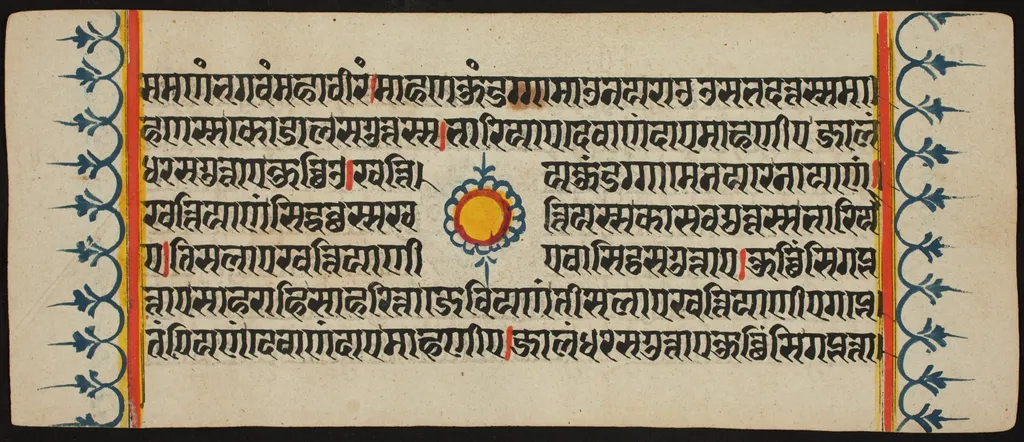 समणं भगवं महावीरं।माहणकुंडग्गामाउ नयराउ उसभदत्तस्स मा
हणस्स कोडालसगुत्तस्स।भारियाए देवाणंदाए माहणीए जालं
धरसगुत्ताए कुच्छिउ।खत्ति यकुंडग्गामे नयरे नायाणं।
खत्तियाणं सिद्धत्थस्स ख त्तियस्स कासवगुत्तस्स भारिया
ए।तिसलाए खत्तियाणी ए वासिट्ठसगुत्ताए।कुच्छिंसि गब्भ
त्ताए साहराहि साहरित्ता जे वि य णं तिसलाए खत्तियाणीए गब्भे
तं पि य णं देवाणंदाए माहणीए।जालंधरसगुत्ताए कुच्छिंसि गब्भत्ता